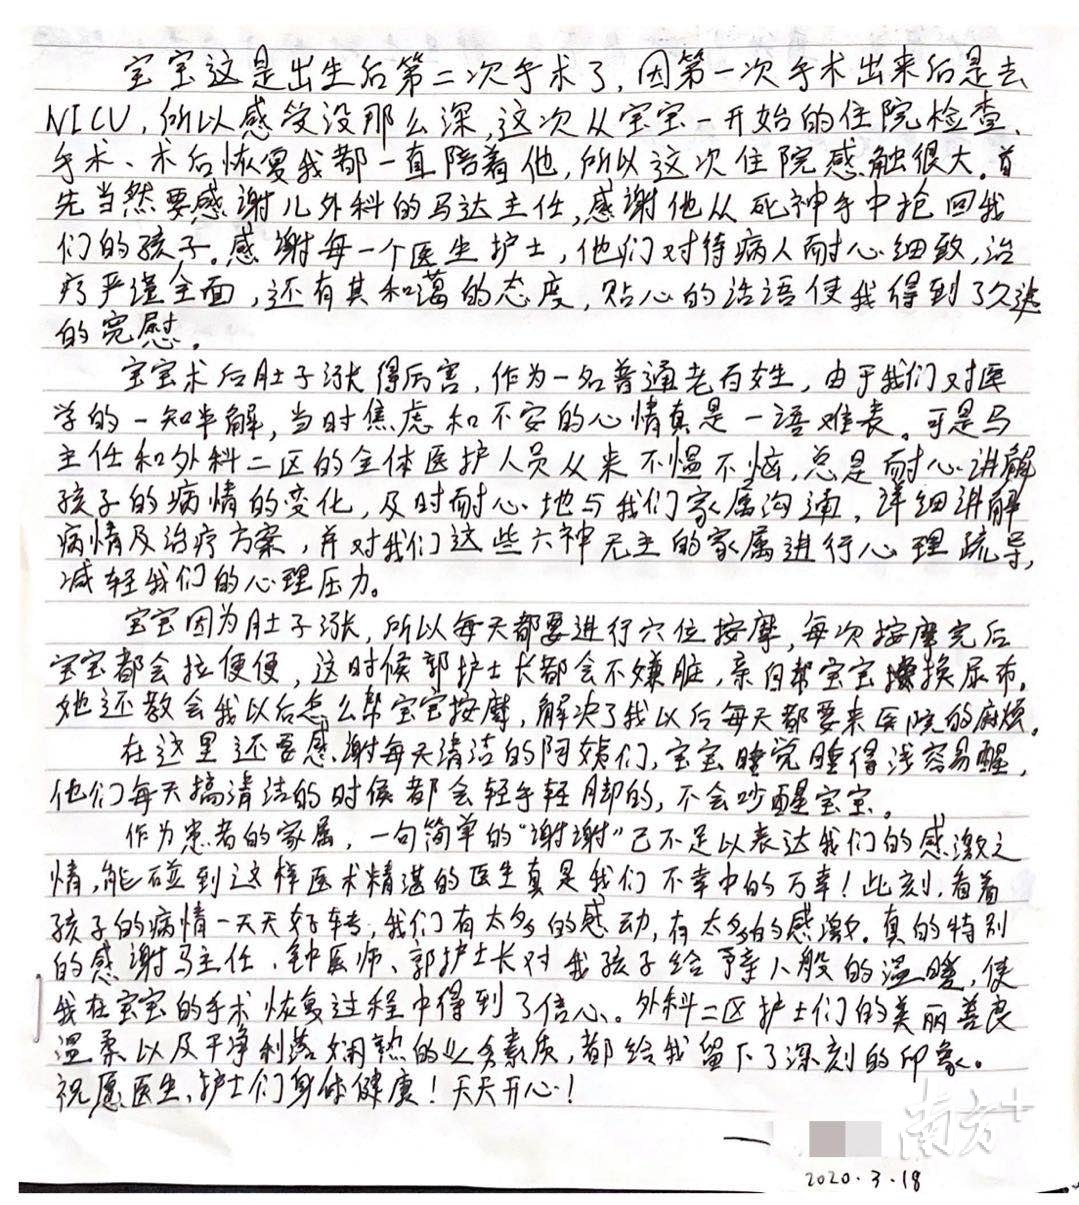 宝宝这是出生后第二次手术了，因第一次手术出来后是去
NICU，所以感受没那么深，这次从宝宝一开始的住院检查、
手术、术后恢复我都一直陪着他，所以这次住院感触很大。首
先当然要感谢儿外科的马达主任，感谢他从死神手中抢回我
们的孩子。感谢每一个医生护士，他们对待病人耐心细致，治
疗严谨全面，还有其和蔼的态度，贴心的话语使我得到了久违
的宽慰。
宝宝术后肚子涨得厉害，作为一名普通老百姓，由于我们对医
学的一知半解，当时焦虑和不安的心情真是一语难表。可是马
主任和外科二区的全体医护人员从来不愠不恼，总是耐心讲解
孩子的病情的变化，及时耐心地与我们家属沟通，详细讲解
病情及治疗方案，并对我们这些六神无主的家属进行心理疏导，
减轻我们的心理压力。
宝宝因为肚子涨，所以每天都要进行穴位按摩，每次按摩完后
宝宝都会拉便便，这时候郭护士长都会不嫌脏，亲自帮宝宝换尿布，
她还教会我以后怎么帮宝宝按摩，解决了我以后每天都要来医院的麻烦。
在这里还要感谢每天清洁的阿姨们，宝宝睡觉睡得浅容易醒，
他们每天搞清洁的时候都会轻手轻脚的，不会吵醒宝宝。
作为患者的家属，一句简单的“谢谢”已不足以表达我们的感激之
情，能碰到这样医术精湛的医生真是我们不幸中的万幸！此刻，看着
孩子的病情一天天好转，我们有太多的感动，有太多的感激。真的特别
的感谢马主任、钟医师、郭护士长对我孩子给予亲人般的温暖，使
我在宝宝的手术恢复过程中得到了信心。外科二区护士们的美丽善良
温柔以及干净利落娴熟的业务素质，都给我留下了深刻的印象。
祝愿医生、护士们身体健康！天天开心！
一
南方+
2020.3.18